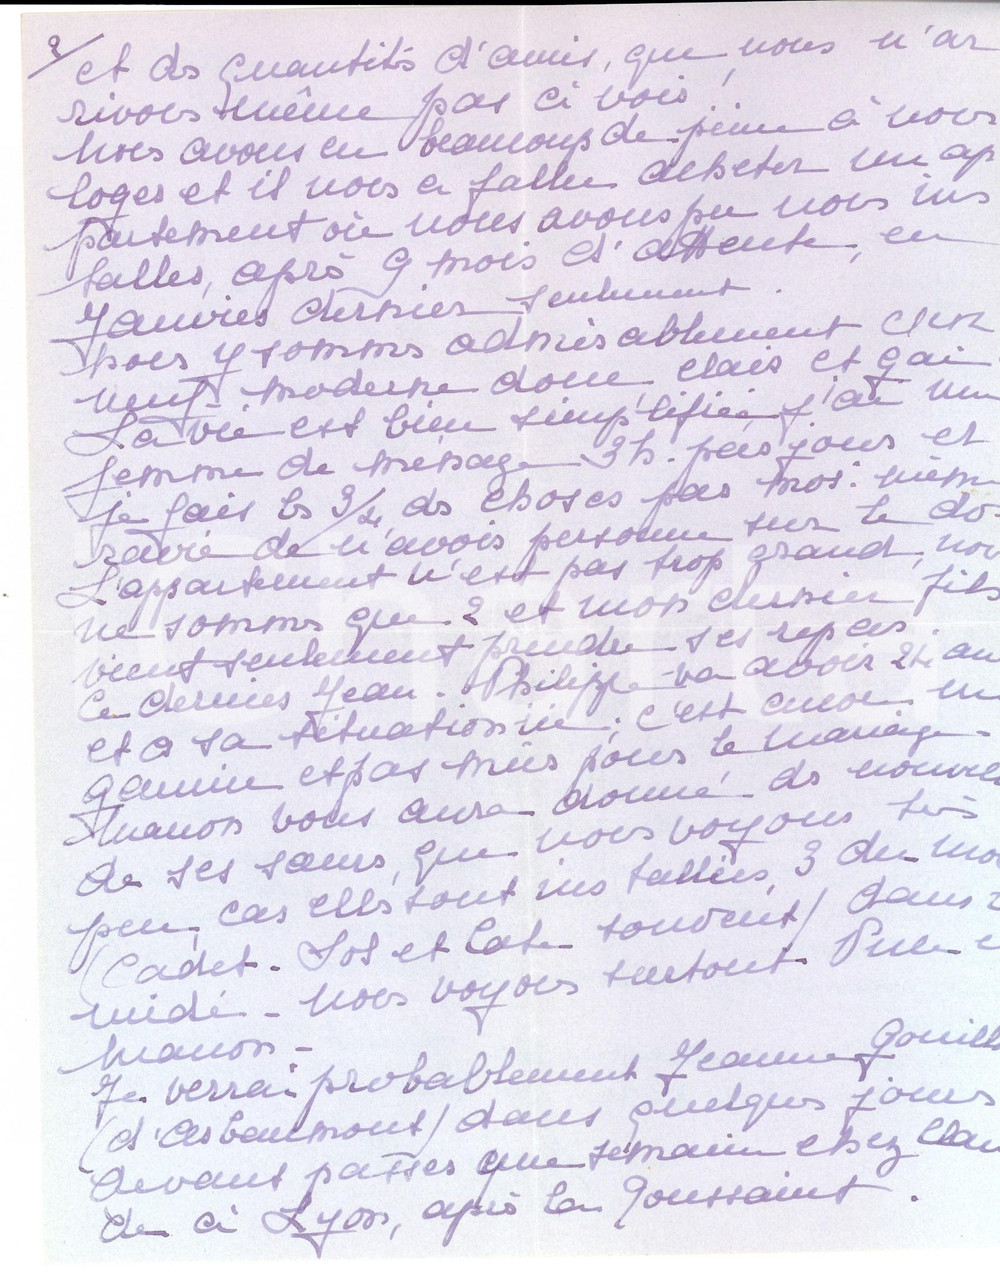 2/
et des quantités d'amis, que nous n'ar
rivons même pas à voir !
Nous avons eu beaucoup de peine à nous
loger et il nous a fallu acheter un ap
partement où nous avons pu nous ins
taller, après 9 mois d'attente, en
Janvier dernier seulement.
Nous y sommes admirablement
neuf, moderne donc clair et gai
La vie est bien simplifiée j'ai une
femme de ménage 3h. par jour et
je fais les 3/4 des choses par moi-même
ravie de n'avoir personne sur le dos
L'appartement n'est pas trop grand, nous
ne sommes que 2 et mon dernier fils
vient seulement prendre ses repas.
Ce dernier Jean-Philippe va avoir 24 ans
et a sa situation ici; c'est encore un
gamin et pas mûr pour le mariage.
Manon vous aura donné des nouvelles
de ses sœurs, que nous voyons très
peu, car elles sont installées, 3 du moins
(Cadet. Jos et Cate souvent) dans le
midi - Nous voyons surtout
Manon -
Je verrai probablement Jeanne Gouill
(d'Asbeaumont) dans quelques jours
devant passer une semaine chez Clau
de à Lyon, après la Toussaint.